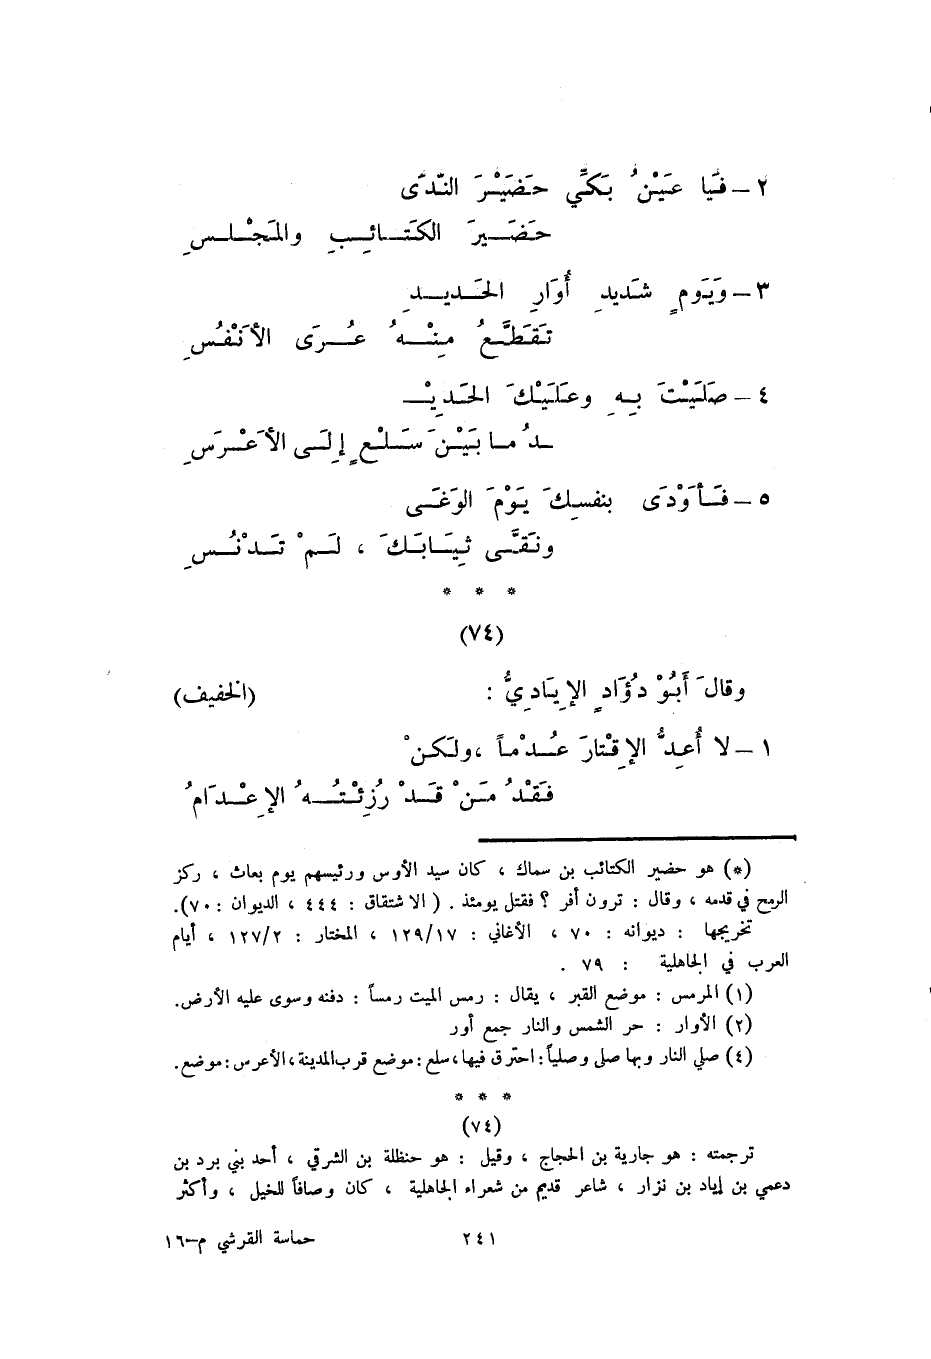 ٢ – فَيا عَيْنُ بَكِّي حَضَيْرَ النّدَى
حَضَيرَ الكَتَائِبِ والمَجْلسِ
٣ – وَيَومٍ شَديدِ أُوَارِ الحَديدِ
تَقَطَّعُ مِنْهُ عُرَى الأنْفُسِ
٤ – صَلَيْتَ بِهِ وعَلَيْكَ الحَديْـ
ـدُ ما بَيْنَ سَلْعٍ إلَى الأَعْرَسِ
٥ – فَأَوْدَى بنفسِكَ يَوْمَ الوَغَى
ونَقَّى ثِيَابَكَ ، لَمْ تَدْنُسِ
* * *
(٧٤)
وقالَ أَبُوْ دُؤَادٍ الإيَادِيُّ : (الخفيف)
١ – لا أُعِدُّ الإقْتارَ عُدْماً ،ولكنْ
فَقْدُ مَنْ قَدْ رُزِئْتُهُ الإعْدَامُ
(*) هو حضير الكتائب بن سماك ، كان سيد الأوس ورئيسهم يوم بعاث ، ركز
الرمح في قدمه ، وقال : ترون أفر ؟ فقتل يومئذ . ( الاشتقاق : ٤٤٤ ، الديوان : ٧٠).
تخريجها : ديوانه : ٧٠ ، الأغاني : ١٢٩/١٧ ، المختار : ١٢٧/٢ ، أيام
العرب في الجاهلية : ٧٩ .
(١) المرمس : موضع القبر ، يقال : رمس الميت رمساً : دفنه وسوى عليه الأرض.
(٢) الأوار : حر الشمس والنار جمع أور
(٤) صلي النار وبها صلى وصلياً: احترق فيها، سلع: موضع قرب المدينة، الأعرس: موضع.
* * *
(٧٤)
ترجمته : هو جارية بن الحجاج ، وقيل : هو حنظلة بن الشرقي ، أحد بني برد بن
دعمي بن إياد بن نزار ، شاعر قديم من شعراء الجاهلية ، كان وصافاً للخيل ، وأكثر
٢٤١ حماسة القرشي م–١٦